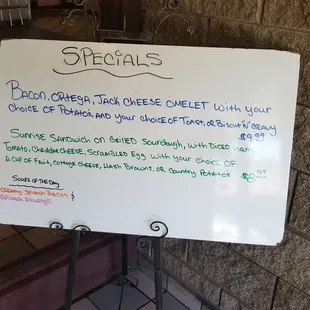 Specials
Bacon, Ortega, Jack Cheese Omelet with your
choice of Potato's, and your choice of Toast, or Biscuit N' Gravy
$9.99
Sunrise Sandwich on Grilled Sourdough, with Diced Ham
Tomato, Cheddar Cheese, Scrambled Egg with your choice of
A cup of Fruit, Cottage Cheese, Hash Browns, or Country Potatoes
Soups of the Day
Creamy Spinach Bacon &